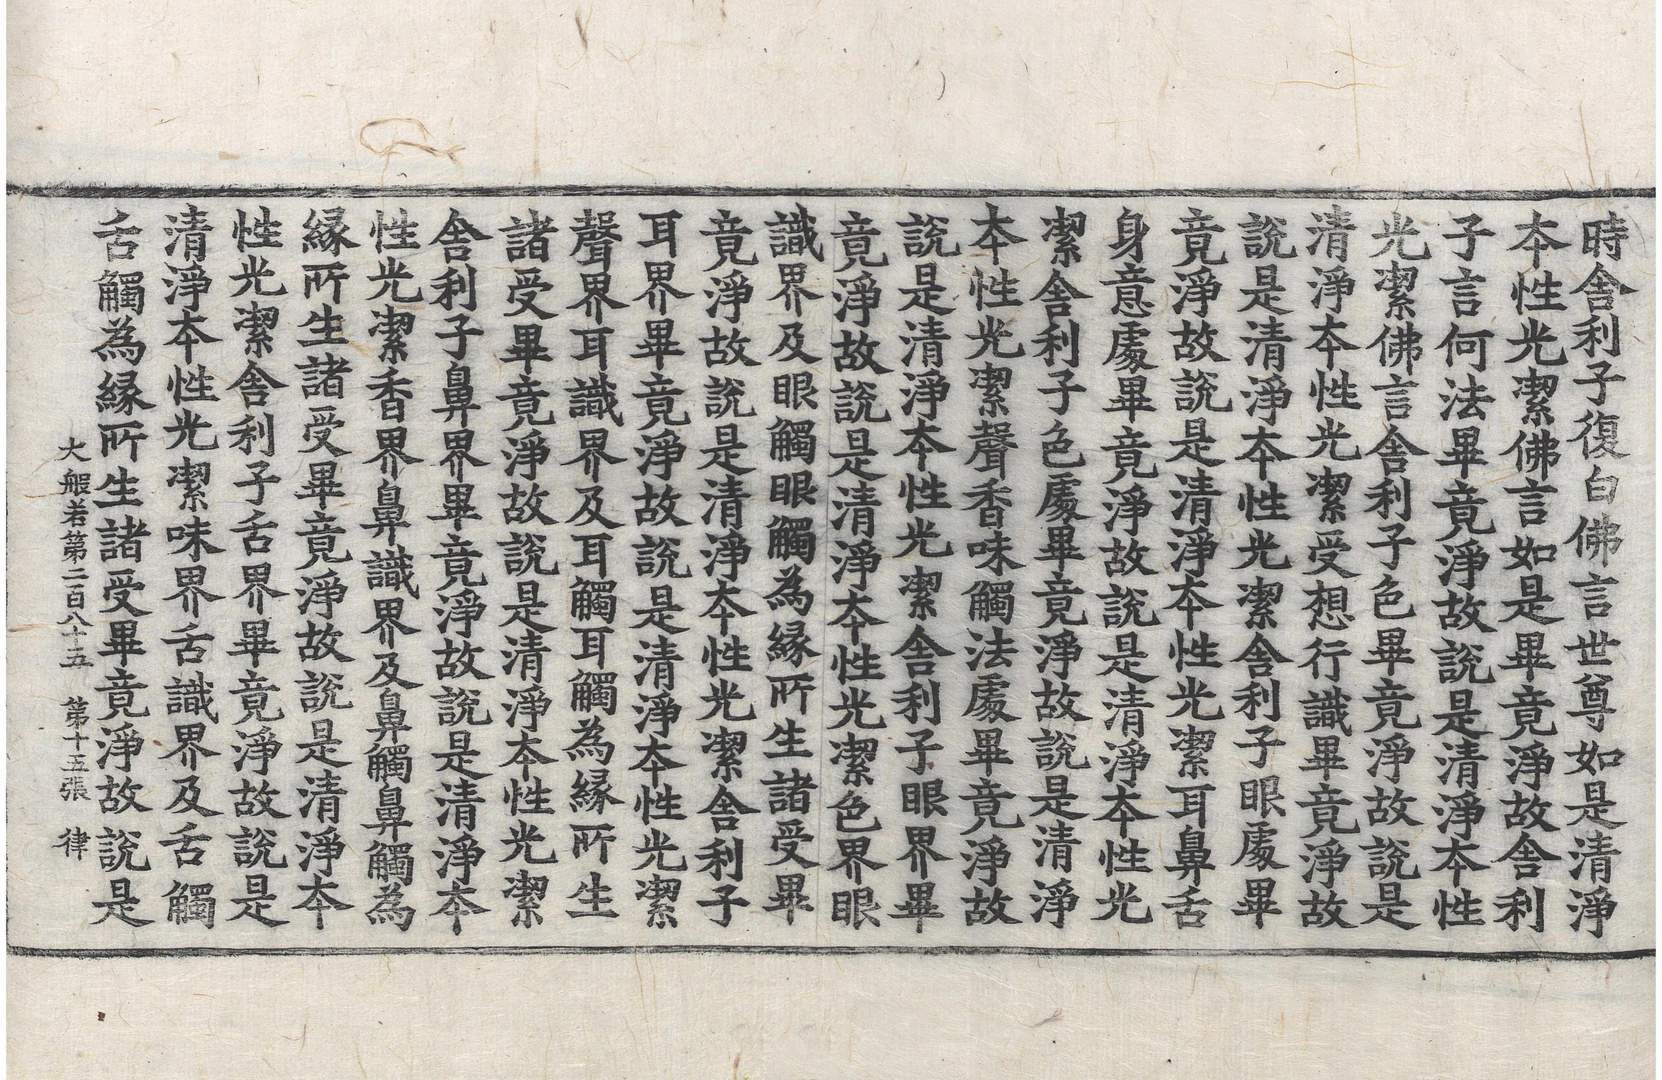 時舍利子復白佛言世尊如是清淨
本性光潔佛言如是畢竟淨故舍利
子言何法畢竟淨故說是清淨本性
光潔佛言舍利子色畢竟淨故說是
清淨本性光潔受想行識畢竟淨故
說是清淨本性光潔舍利子眼處畢
竟淨故說是清淨本性光潔耳鼻舌
身意處畢竟淨故說是清淨本性光
潔舍利子色處畢竟淨故說是清淨
本性光潔聲香味觸法處畢竟淨故
說是清淨本性光潔舍利子眼界畢
竟淨故說是清淨本性光潔色界眼
識界及眼觸眼觸為緣所生諸受畢
竟淨故說是清淨本性光潔舍利子
耳界畢竟淨故說是清淨本性光潔
聲界耳識界及耳觸耳觸為緣所生
諸受畢竟淨故說是清淨本性光潔
舍利子鼻界畢竟淨故說是清淨本
性光潔香界鼻識界及鼻觸鼻觸為
緣所生諸受畢竟淨故說是清淨本
性光潔舍利子舌界畢竟淨故說是
清淨本性光潔味界舌識界及舌觸
舌觸為緣所生諸受畢竟淨故說是
大般若第二百八十五 第十五張 律